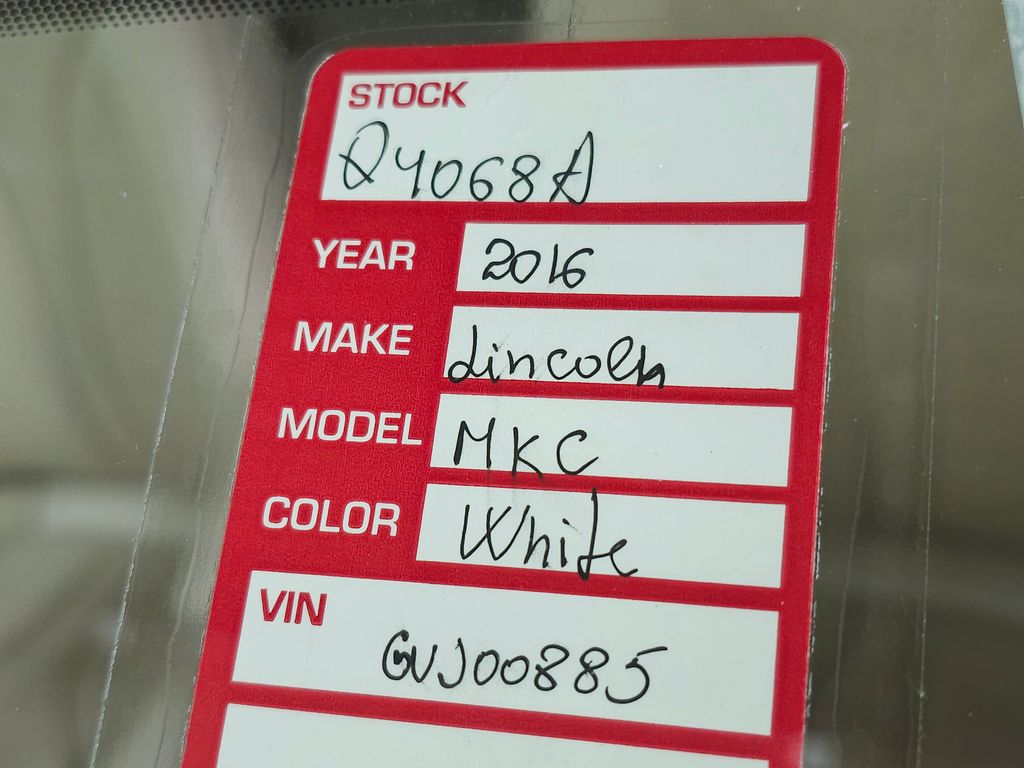 STOCK
Q4068A
YEAR 2016
MAKE Lincoln
MODEL MKC
COLOR White
VIN
GUJ00885